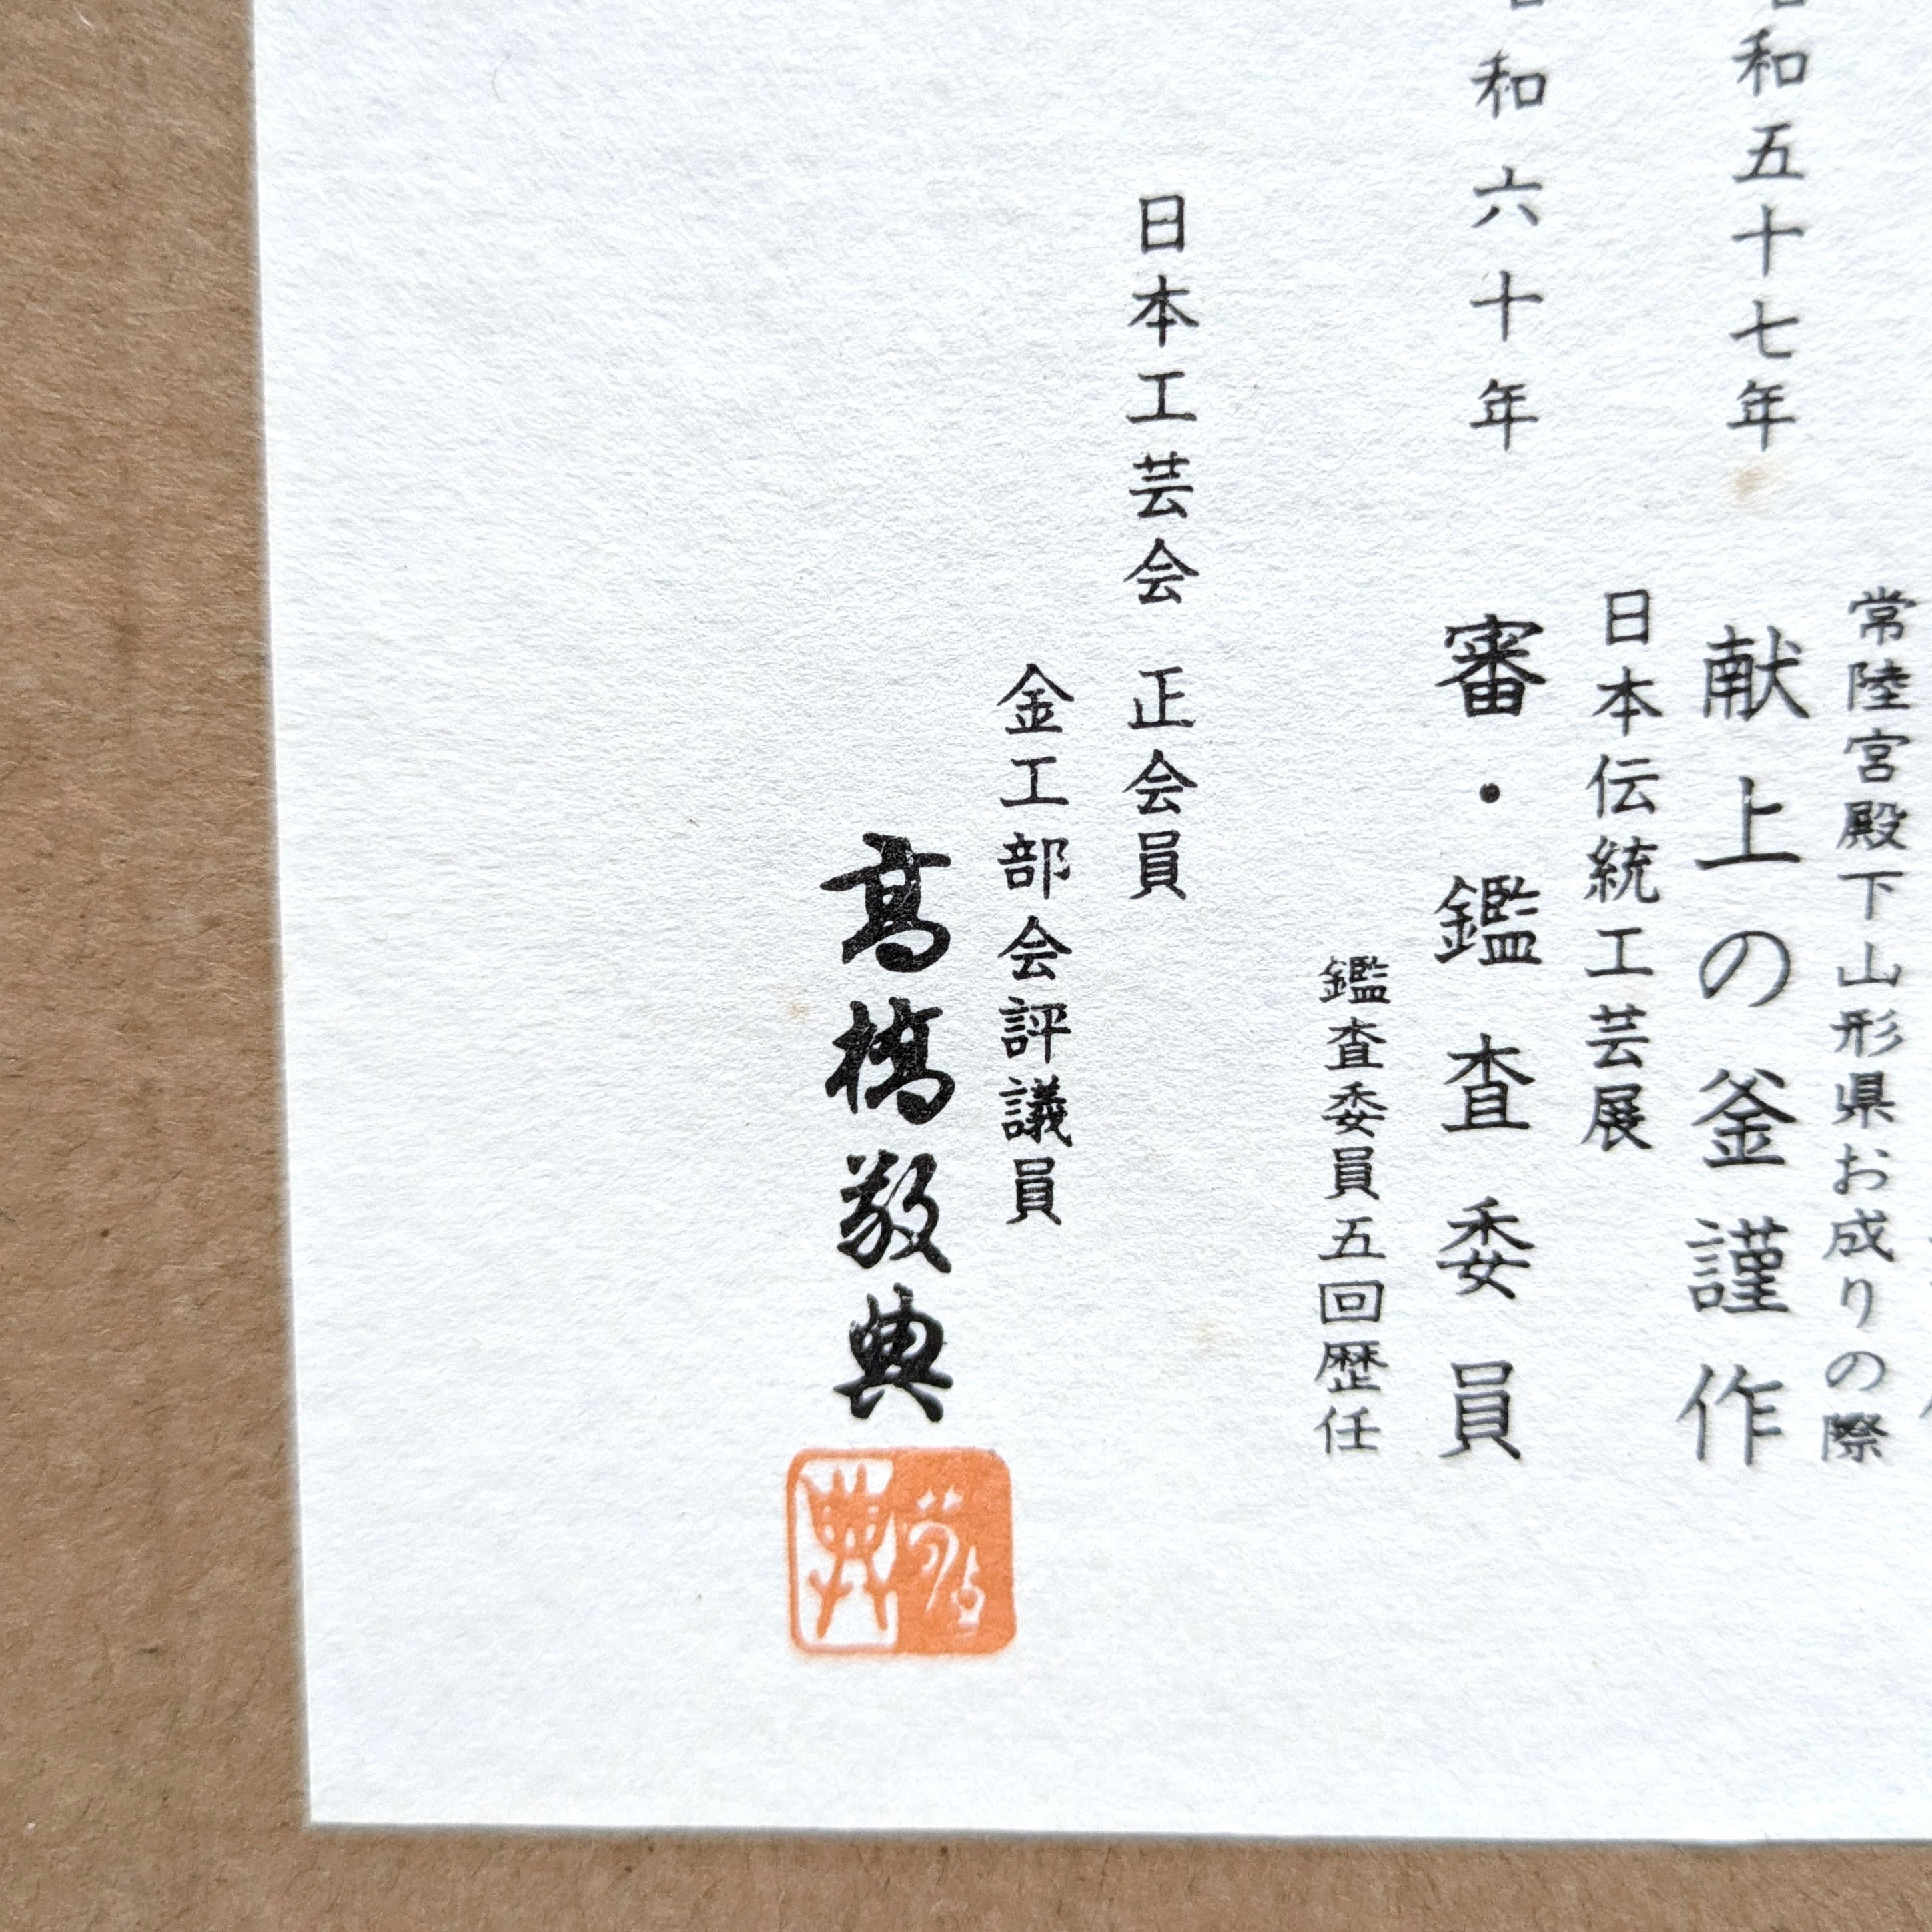 常陸宮殿下山形県お成りの際
和五十七年 献上の釜謹作
日本伝統工芸展
和六十年 審・鑑査委員
鑑査委員五回歴任
日本工芸会 正会員
金工部会評議員
髙橋敬典
敬典